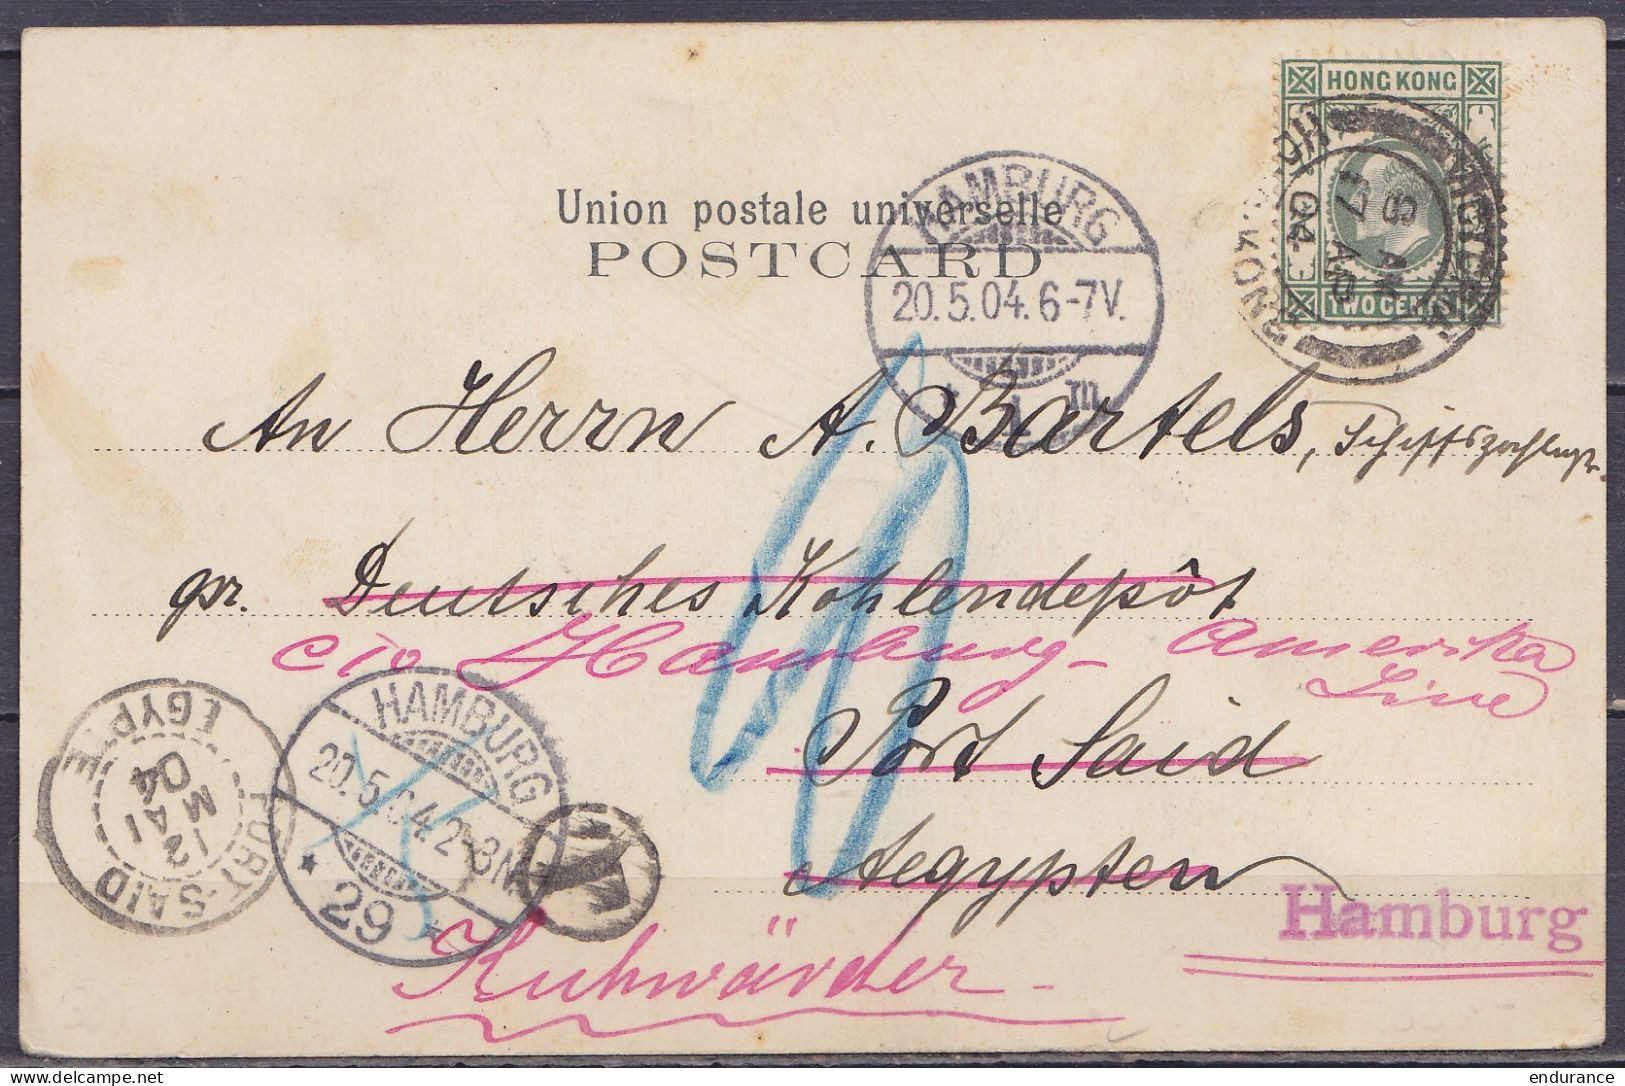 HONG KONG
TWO CENTS
VICTORIA
HONG KONG
5 AM
17 AP
04
Union postale universelle
POSTCARD
HAMBURG
20.5.04. 6-7V.
* 1 m
An Herrn A. Bartels,
pr. Deutsches Kohlendepôt
c/o Hamburg-Amerika
Line
Port Said
Aegypten
HAMBURG
20.5.04. 2-3N
* 29 *
PORT-SAID
EGYPTE
12
MAI
04
T
Hamburg
Kuhwärder
delcampe.net
endurance